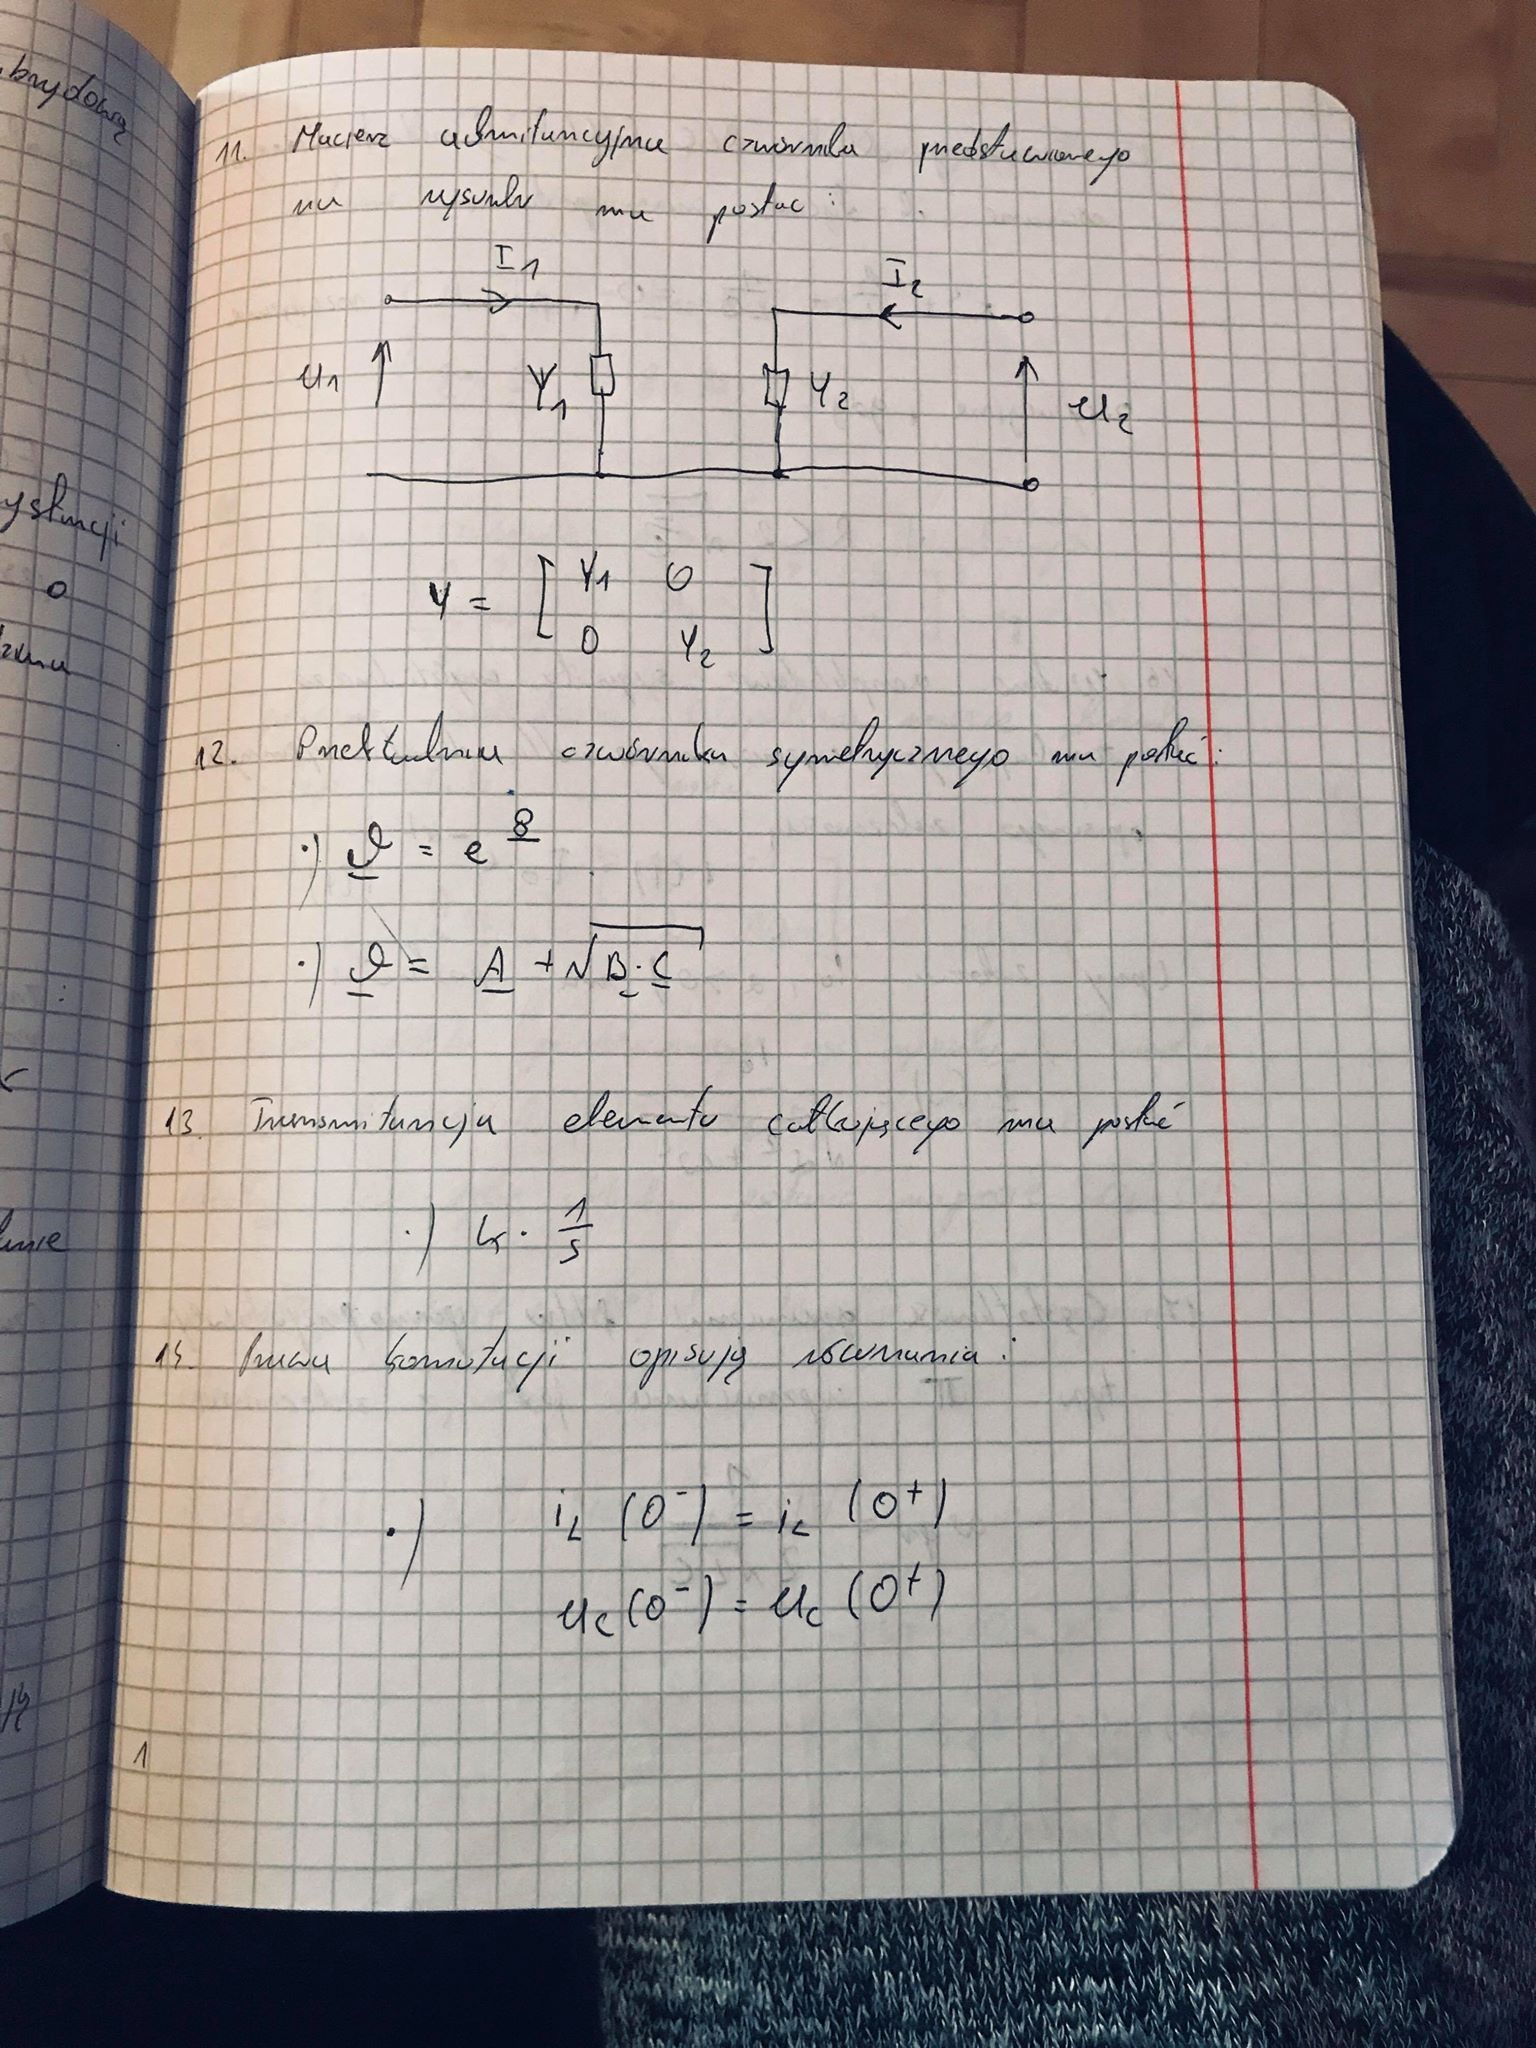 brydową
ystuncji
o
unie
11. Macierz admitancyjna czwórnika przedstawionego
na rysunku ma postać:
I1
I2
u1
Y1
Y2
u2
Y = [ Y1 0
0 Y2 ]
12. Przekładnia czwórnika symetrycznego ma postać:
·) ϑ = e^8
·) ϑ = A + √B·C
13. Transmitancja elementu całkującego ma postać
·) k · 1/s
14. Prawa komutacji opisują równania:
·) iL (0⁻) = iL (0⁺)
uc (0⁻) = uc (0⁺)
1